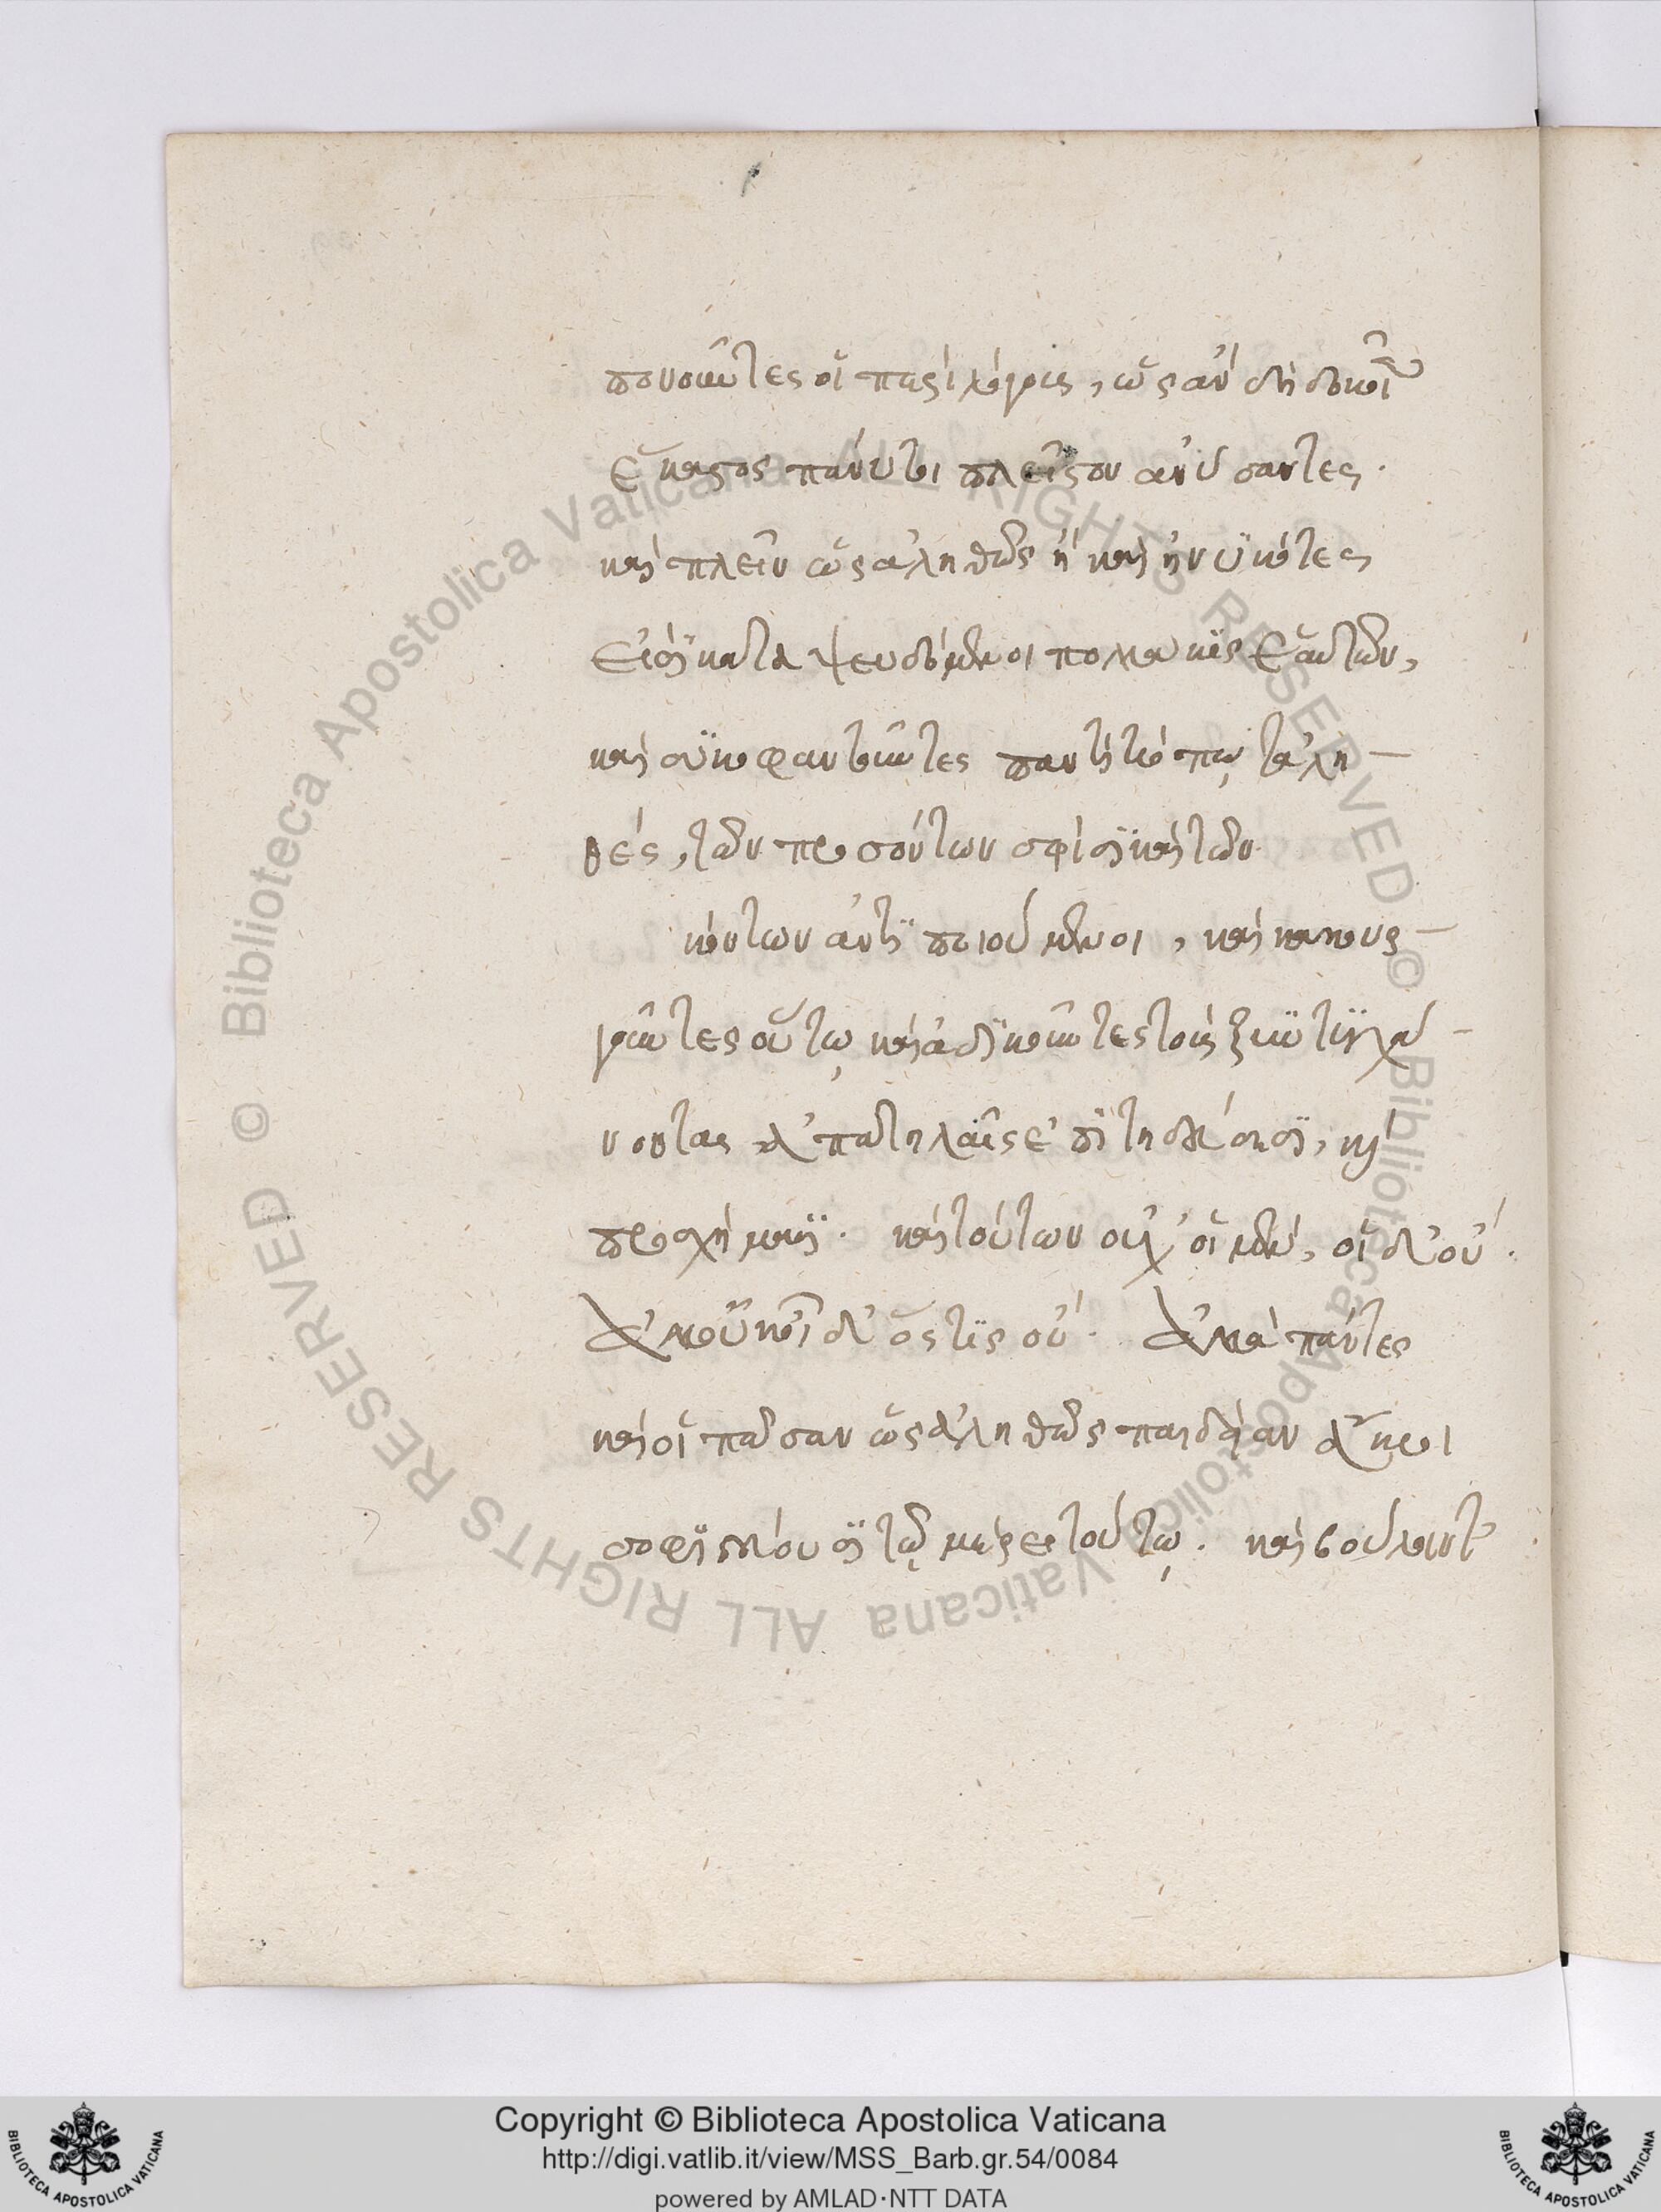 πονοῦντες οἱ πλεῖ, ὡς ἂν δὴ δοκοῖ
ἕκαστος παντὶ πλεῖστον ἀνύσαντες.
καὶ πλεῖν ὡς ἀληθῶς ἢ καὶ ἠνυκότες
εἰσὶ καταψευδόμενοι πολλάκις ἑαυτῶν,
καὶ συκοφαντοῦντες παντὶ τρόπῳ τἀλη-
θές, τῶν προσόντων σφίσι καὶ τῶν
κόντων ἀντιποιούμενοι, καὶ κακουρ-
γοῦντες οὕτω καὶ ἀδικοῦντες τοὺς ξυντυγχά-
νοντας ἀπατηλαῖς ἐπιτηδεύσεσι, καὶ
προσχήμασι. καὶ τούτων οὐχ' οἱ μέν, οἱ δ' οὔ.
ἀλλ' οὐκοῦν δ' ὅστις οὔ. ἀλλὰ πάντες
καὶ οἱ πᾶσαν ὡς ἀληθῶς παιδείαν ἄκροι
σοφιστεύουσι τῷ μέρει τούτῳ. καὶ βούλοιντ'
Copyright © Biblioteca Apostolica Vaticana
http://digi.vatlib.it/view/MSS_Barb.gr.54/0084
powered by AMLAD·NTT DATA
BIBLIOTECA APOSTOLICA VATICANA
BIBLIOTECA APOSTOLICA VATICANA
© Biblioteca Apostolica Vaticana ALL RIGHTS RESERVED © Biblioteca Apostolica Vaticana ALL RIGHTS RESERVED